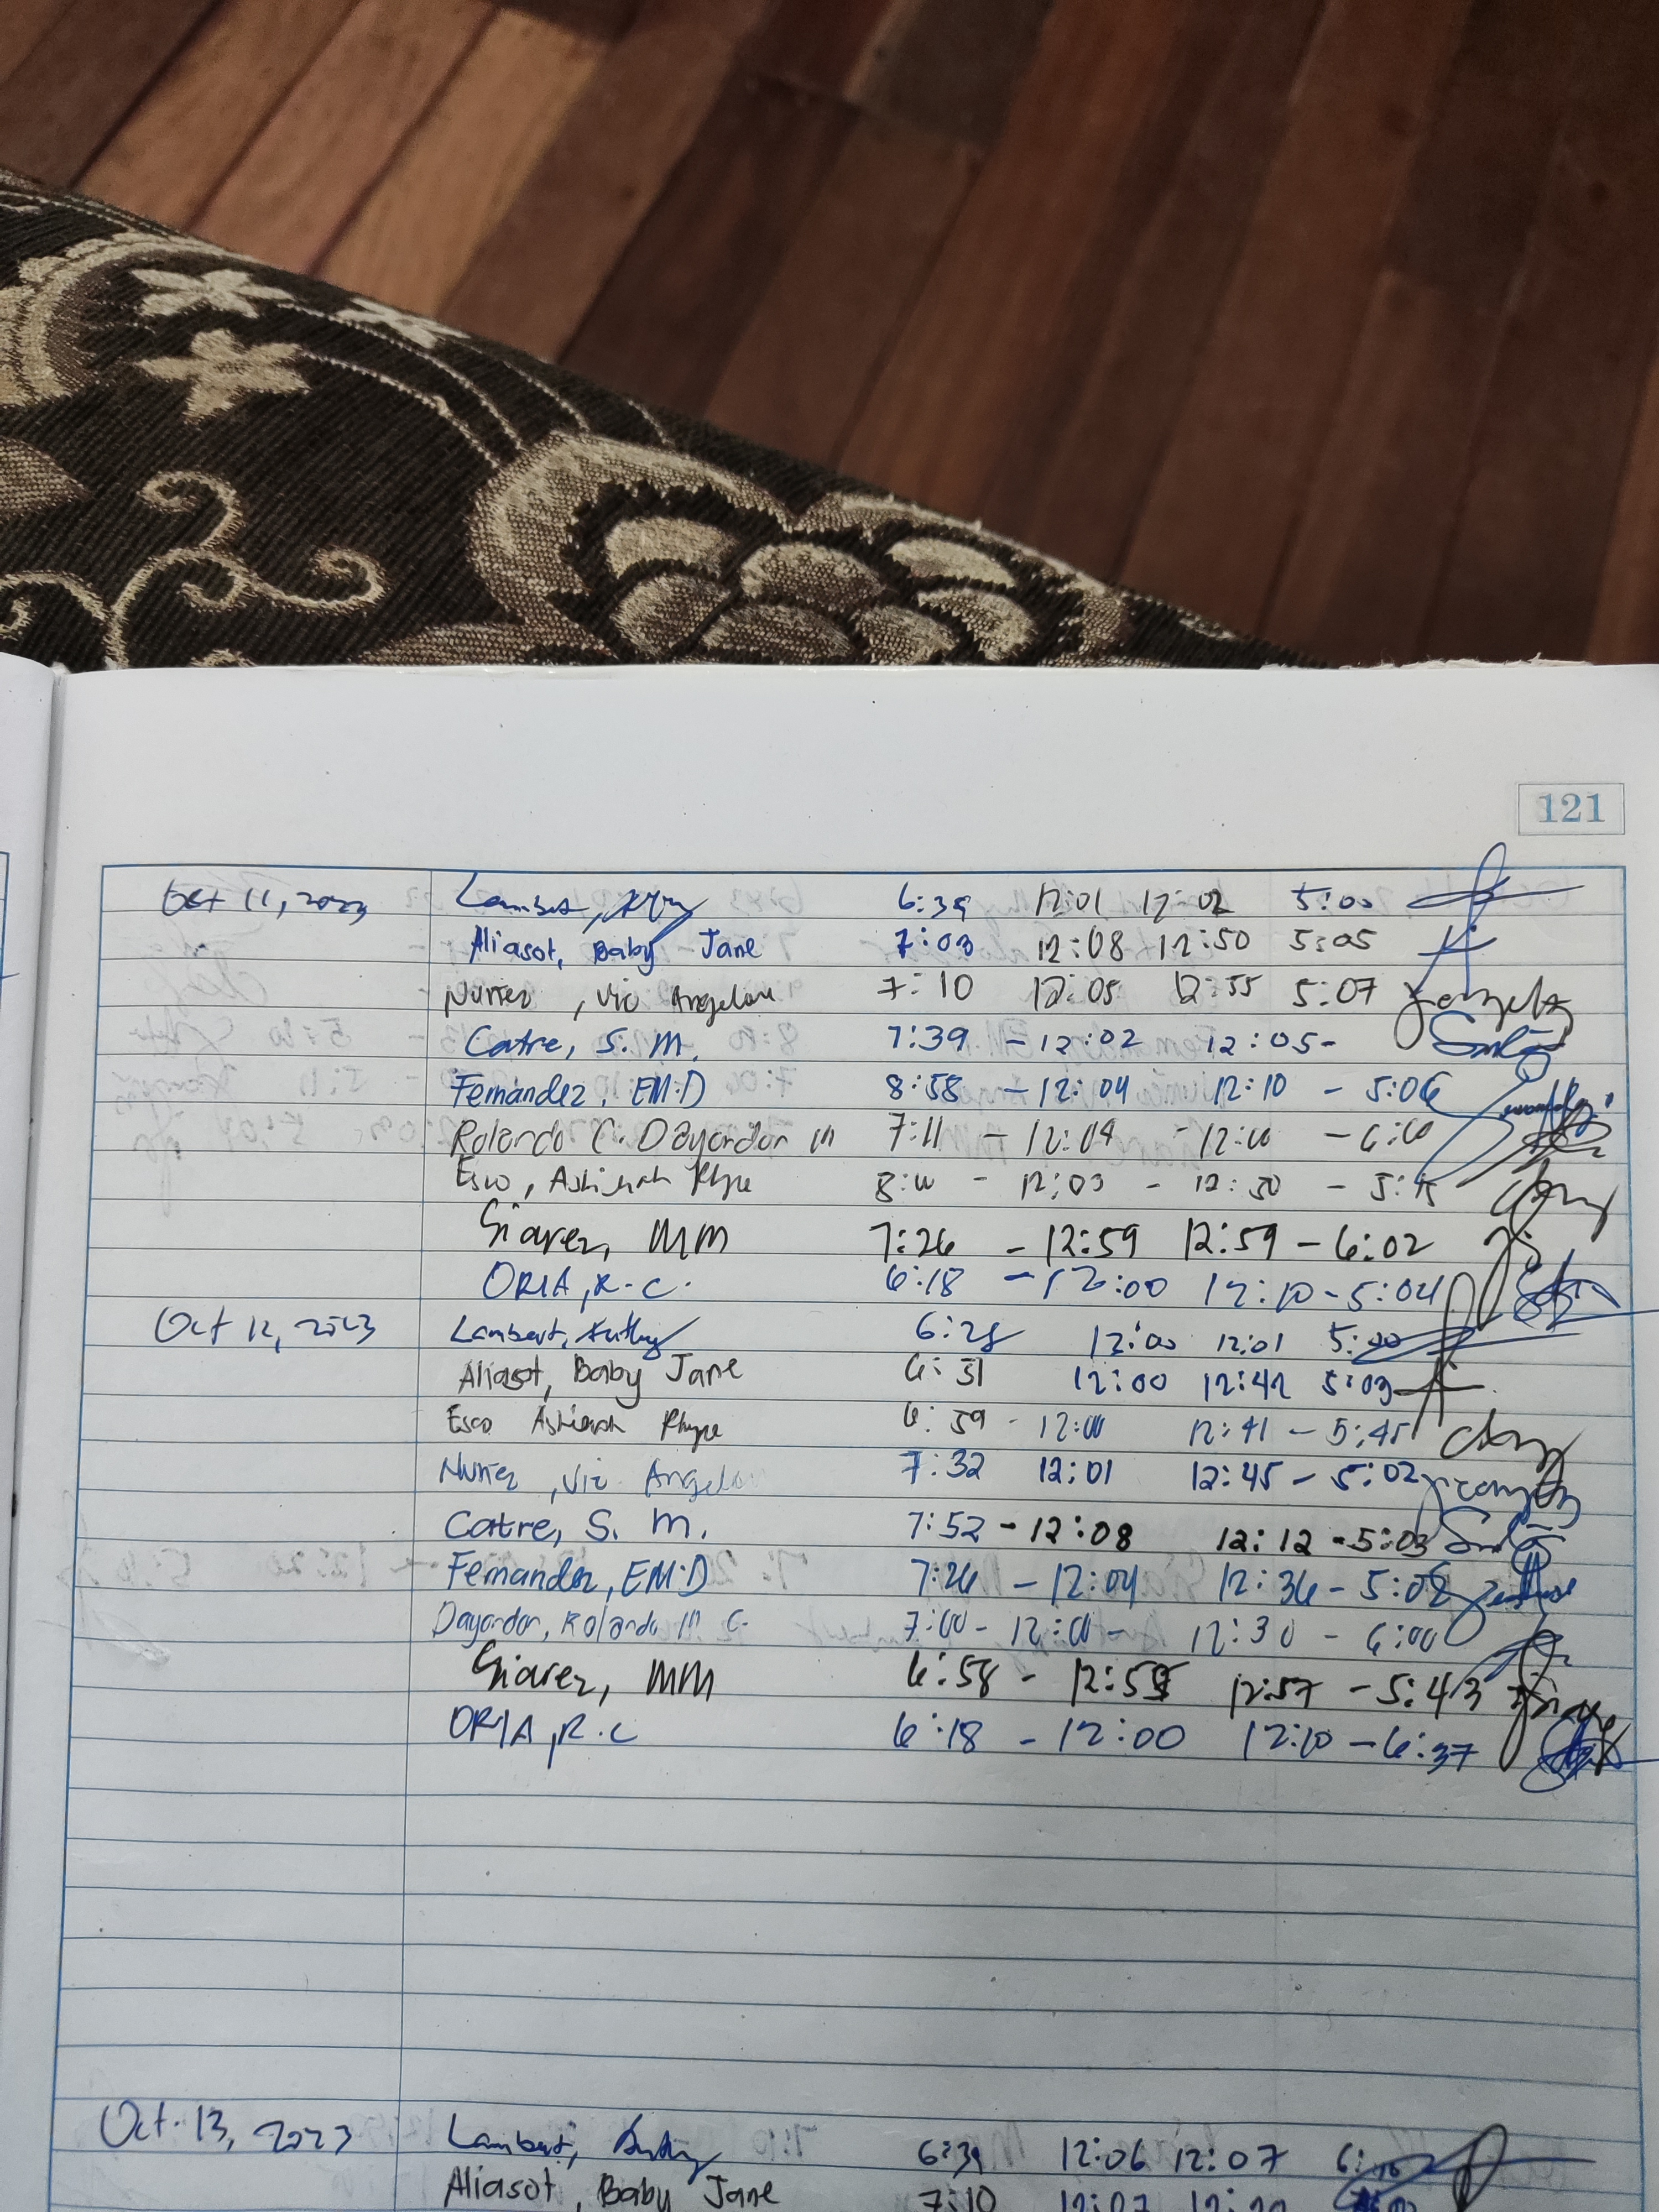 121
Oct 11, 2023 Lambert, 6:39 12:01 12:02 5:00
Aliasot, Baby Jane 7:03 12:08 12:50 5:05
Nuñez, Vic Angelou 7:10 12:05 12:55 5:07
Catre, S. M. 7:39 - 12:02 12:05-
Fernandez, EM.D 8:58 - 12:04 12:10 - 5:06
Rolando C. Dayondon III 7:11 - 12:04 - 12:00 - 6:00
Esco, Ashierah Rhyze 8:00 - 12:03 - 12:30 - 5:15
Siarez, MM 7:26 - 12:59 12:59 - 6:02
ORIA, R.C. 6:18 - 12:00 12:10 - 5:04
Oct 12, 2023 Lambert, 6:28 12:00 12:01 5:00
Aliasot, Baby Jane 6:51 12:00 12:42 5:03
Esco Ashierah Rhyze 6:59 - 12:00 12:41 - 5:45
Nuñez, Vic Angelou 7:32 12:01 12:45 - 5:02
Catre, S. M. 7:52 - 12:08 12:12 - 5:03
Fernandez, EM.D 7:26 - 12:04 12:36 - 5:08
Dayondon, Rolando III C. 7:00 - 12:00 - 12:30 - 6:00
Siarez, MM 6:58 - 12:55 12:57 - 5:43
ORIA, R.C 6:18 - 12:00 12:10 - 6:37
Oct. 13, 2023 Lambert, 6:39 12:06 12:07
Aliasot, Baby Jane 7:10 12:07